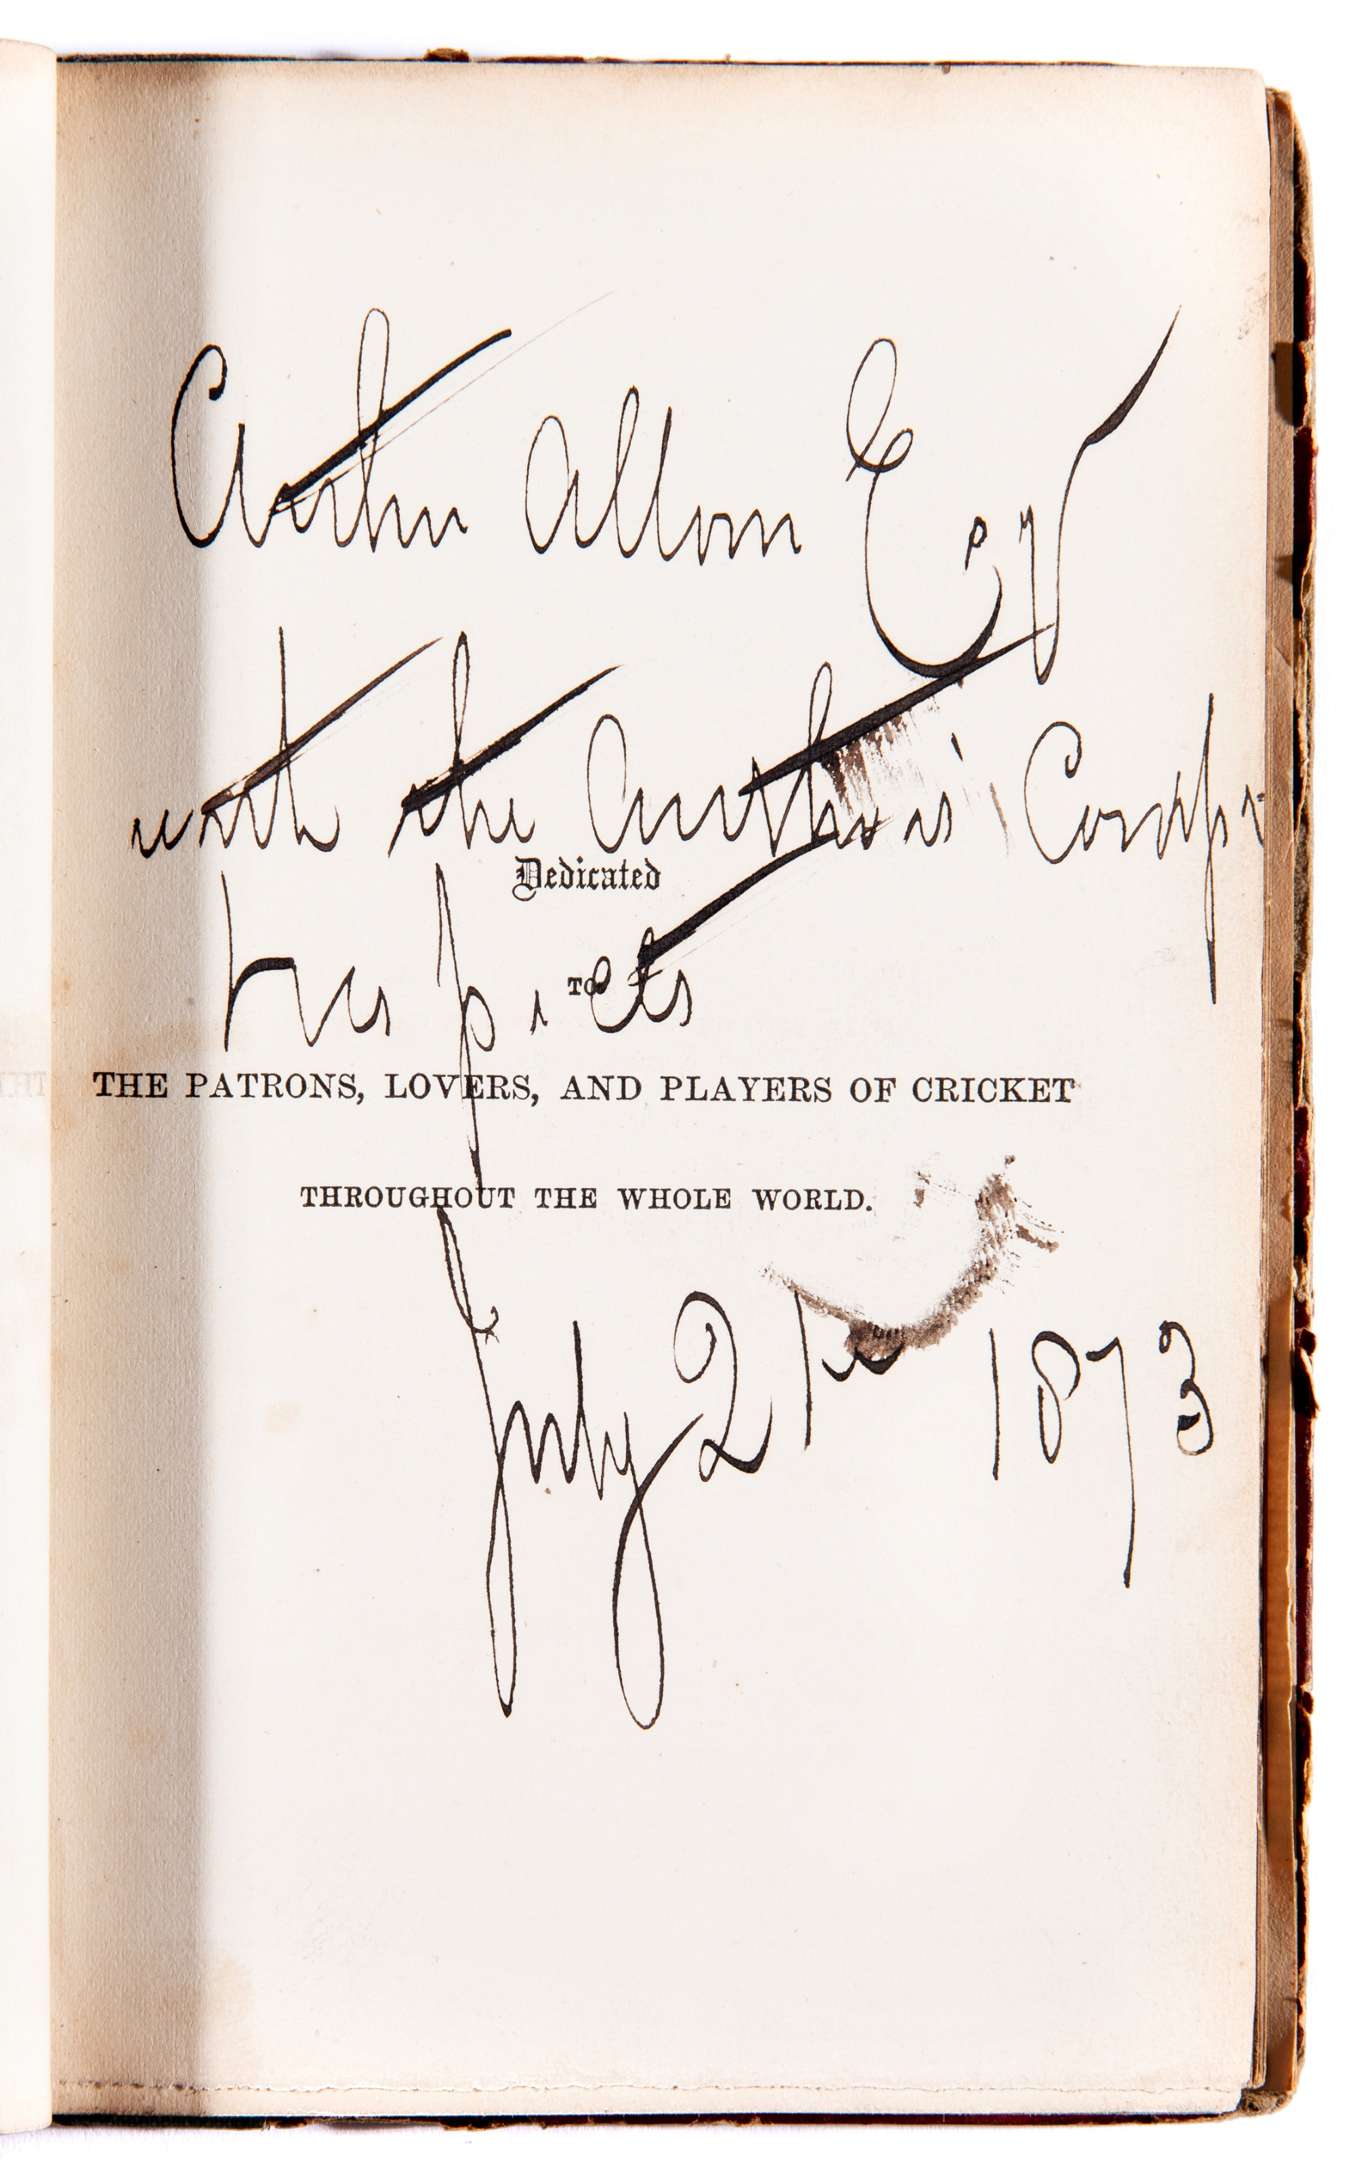 Arthur Allom Esq
with the Author's Comps
Dedicated
respects
TO
THE PATRONS, LOVERS, AND PLAYERS OF CRICKET
THROUGHOUT THE WHOLE WORLD.
July 21st 1873